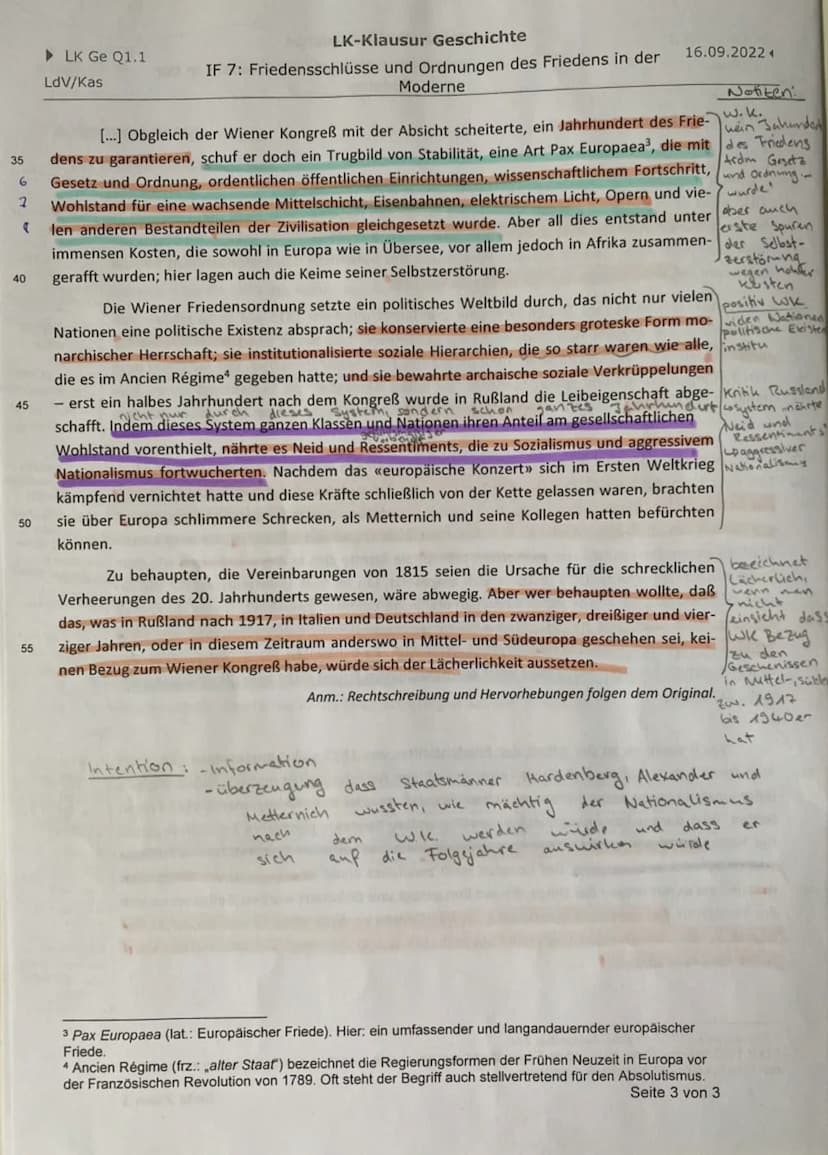 LK-Klausur Geschichte
▶ LK Ge Q1.1
16.09.2022
IF 7: Friedensschlüsse und Ordnungen des Friedens in der
LdV/Kas
Moderne
Notizen:
[...] Obgleich der Wiener Kongreß mit der Absicht scheiterte, ein Jahrhundert des Frie-
35 dens zu garantieren, schuf er doch ein Trugbild von Stabilität, eine Art Pax Europaea³, die mit
6 Gesetz und Ordnung, ordentlichen öffentlichen Einrichtungen, wissenschaftlichem Fortschritt,
7 Wohlstand für eine wachsende Mittelschicht, Eisenbahnen, elektrischem Licht, Opern und vie-
8 len anderen Bestandteilen der Zivilisation gleichgesetzt wurde. Aber all dies entstand unter
immensen Kosten, die sowohl in Europa wie in Übersee, vor allem jedoch in Afrika zusammen-
40 gerafft wurden; hier lagen auch die Keime seiner Selbstzerstörung.
W.K.
kein Jahrhundert
des Friedens
Gesetz
und Ordnung
wurde
aber auch
erste Spuren
der Selbst-
zerstörung
wegen hoher
Kosten
Die Wiener Friedensordnung setzte ein politisches Weltbild durch, das nicht nur vielen
Nationen eine politische Existenz absprach; sie konservierte eine besonders groteske Form mo-
narchischer Herrschaft; sie institutionalisierte soziale Hierarchien, die so starr waren wie alle,
die es im Ancien Régime⁴ gegeben hatte; und sie bewahrte archaische soziale Verkrüppelungen
45 – erst ein halbes Jahrhundert nach dem Kongreß wurde in Rußland die Leibeigenschaft abge-
nicht nur durch dieses System, sondern schon ganzes Jahrhundert
schafft. Indem dieses System ganzen Klassen und Nationen ihren Anteil am gesellschaftlichen
Wohlstand vorenthielt, nährte es Neid und Ressentiments, die zu Sozialismus und aggressivem
Nationalismus fortwucherten. Nachdem das «europäische Konzert» sich im Ersten Weltkrieg
kämpfend vernichtet hatte und diese Kräfte schließlich von der Kette gelassen waren, brachten
50 sie über Europa schlimmere Schrecken, als Metternich und seine Kollegen hatten befürchten
können.
positiv WK
vielen Nationen
politische Existenz
institu
Kritik Russland
System nährte
Neid und
Ressentiments
aggressiver
Nationalismus
Zu behaupten, die Vereinbarungen von 1815 seien die Ursache für die schrecklichen
Verheerungen des 20. Jahrhunderts gewesen, wäre abwegig. Aber wer behaupten wollte, daß
das, was in Rußland nach 1917, in Italien und Deutschland in den zwanziger, dreißiger und vier-
55 ziger Jahren, oder in diesem Zeitraum anderswo in Mittel- und Südeuropa geschehen sei, kei-
nen Bezug zum Wiener Kongreß habe, würde sich der Lächerlichkeit aussetzen.
bezeichnet
Lächerlich,
wenn man
nicht
einsieht dass
WK Bezug
zu den
Geschehnissen
in Mittel-, Süd
zw. 1917
bis 1940er
hat
Anm.: Rechtschreibung und Hervorhebungen folgen dem Original.
Intention: - Information
- überzeugung dass Staatsmänner Hardenberg, Alexander und
Metternich wussten, wie mächtig der Nationalismus
nach dem W.K. werden würde und dass er
sich auf die Folgejahre auswirken würde
³ Pax Europaea (lat.: Europäischer Friede). Hier: ein umfassender und langandauernder europäischer
Friede.
⁴ Ancien Régime (frz.: „alter Staat“) bezeichnet die Regierungsformen der Frühen Neuzeit in Europa vor
der Französischen Revolution von 1789. Oft steht der Begriff auch stellvertretend für den Absolutismus.
Seite 3 von 3